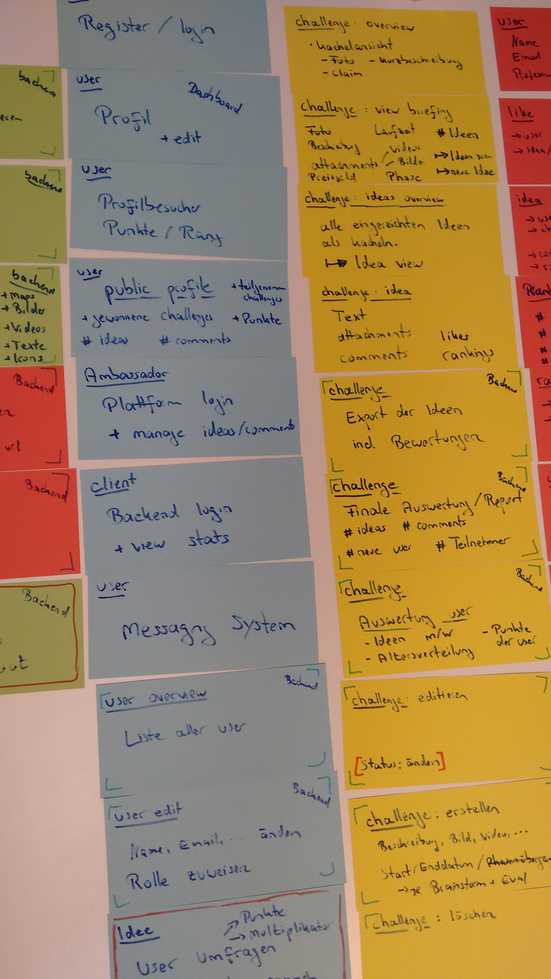 Register / login
user
Dashboard
Profil
+ edit
user
Profilbesucher
Punkte / Rang
user
public profile
+ gewonnene challenges
+ Punkte
# ideas # comments
Ambassador
Plattform login
+ manage ideas/comments
client
Backend login
+ view stats
user
Messaging System
user overview
Backend
Liste aller user
user edit
Backend
Name, Email, ... ändern
Rolle zuweisen
Idee
→ Punkte
→ Multiplikator
User Umfragen
challenge: overview
• Kachelansicht
- Foto - Kurzbeschreibung
- Claim
challenge: view briefing
Foto Laufzeit # Ideen
Beschreibung Videos
attachments Bilder
Preisgeld Phase → neue Idee
challenge: ideas overview
alle eingereichten Ideen
als Kacheln.
→ Idea view
challenge: idea
Text
attachments likes
comments rankings
challenge
Backend
Export der Ideen
incl. Bewertungen
challenge
Backend
Finale Auswertung / Report
# ideas # comments
# neue user # Teilnehmer
challenge
Backend
Auswertung user
- Ideen m/w - Punkte
der user
- Altersverteilung
challenge: editieren
[Status: ändern]
challenge: erstellen
Beschreibung, Bild, Video, ...
Start/Enddatum /
Brainstorm + Eval
challenge: löschen
backend
backend
backend
+ maps
+ Bilder
+ Videos
+ Texte
+ Icons
Backend
url
Backend
Backend
user
Name
Email
like
→ user
→ idea
idea